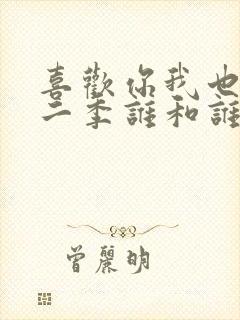 喜歡你我也
二季誰和誰
曾麗明